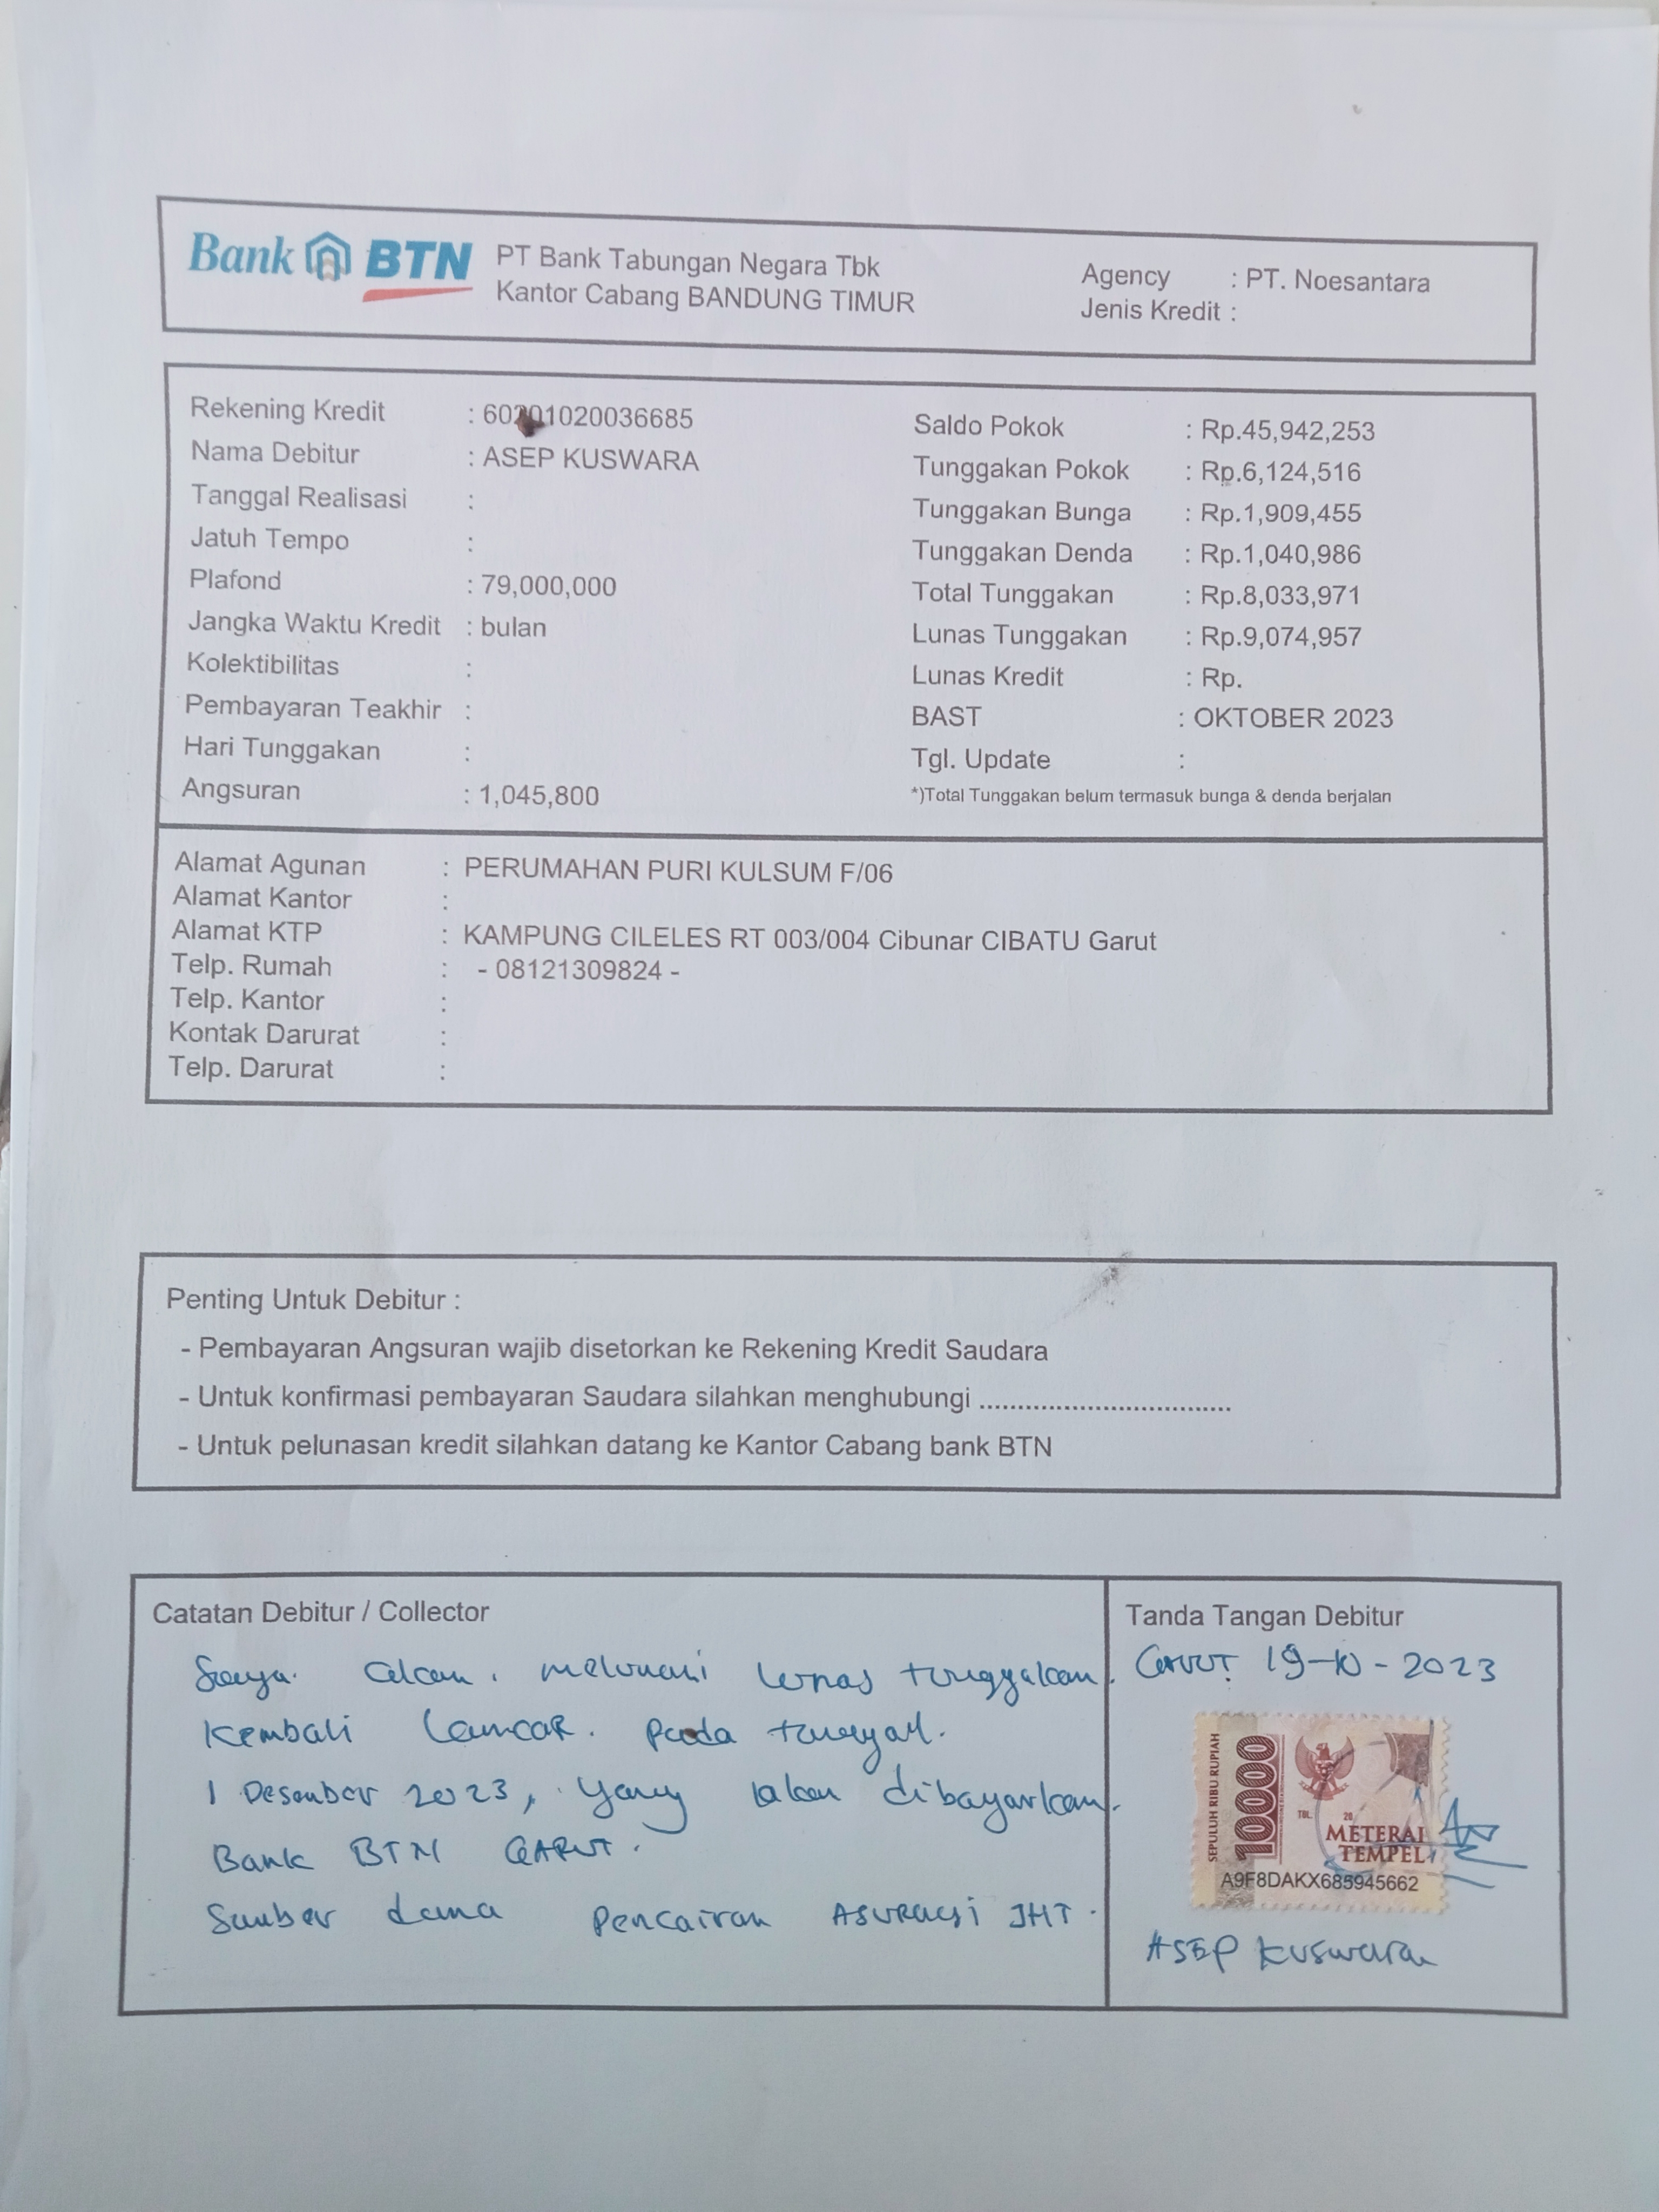 Bank BTN PT Bank Tabungan Negara Tbk
Kantor Cabang BANDUNG TIMUR
Agency : PT. Noesantara
Jenis Kredit :
Rekening Kredit : 60201020036685
Nama Debitur : ASEP KUSWARA
Tanggal Realisasi :
Jatuh Tempo :
Plafond : 79,000,000
Jangka Waktu Kredit : bulan
Kolektibilitas :
Pembayaran Teakhir :
Hari Tunggakan :
Angsuran : 1,045,800
Saldo Pokok : Rp.45,942,253
Tunggakan Pokok : Rp.6,124,516
Tunggakan Bunga : Rp.1,909,455
Tunggakan Denda : Rp.1,040,986
Total Tunggakan : Rp.8,033,971
Lunas Tunggakan : Rp.9,074,957
Lunas Kredit : Rp.
BAST : OKTOBER 2023
Tgl. Update :
*)Total Tunggakan belum termasuk bunga & denda berjalan
Alamat Agunan : PERUMAHAN PURI KULSUM F/06
Alamat Kantor :
Alamat KTP : KAMPUNG CILELES RT 003/004 Cibunar CIBATU Garut
Telp. Rumah : - 08121309824 -
Telp. Kantor :
Kontak Darurat :
Telp. Darurat :
Penting Untuk Debitur :
- Pembayaran Angsuran wajib disetorkan ke Rekening Kredit Saudara
- Untuk konfirmasi pembayaran Saudara silahkan menghubungi .................................
- Untuk pelunasan kredit silahkan datang ke Kantor Cabang bank BTN
Catatan Debitur / Collector
Saya akan melunasi lunas tunggakan.
Kembali Lancar. pada tanggal.
1 Desember 2023, yang akan dibayarkan.
Bank BTN GARUT.
Sumber dana Pencairan ASURANSI JHT.
Tanda Tangan Debitur
GARUT 19-10-2023
SEPULUH RIBU RUPIAH
10000
TGL. 20
METERAI
TEMPEL
A9F8DAKX685945662
ASEP Kuswara